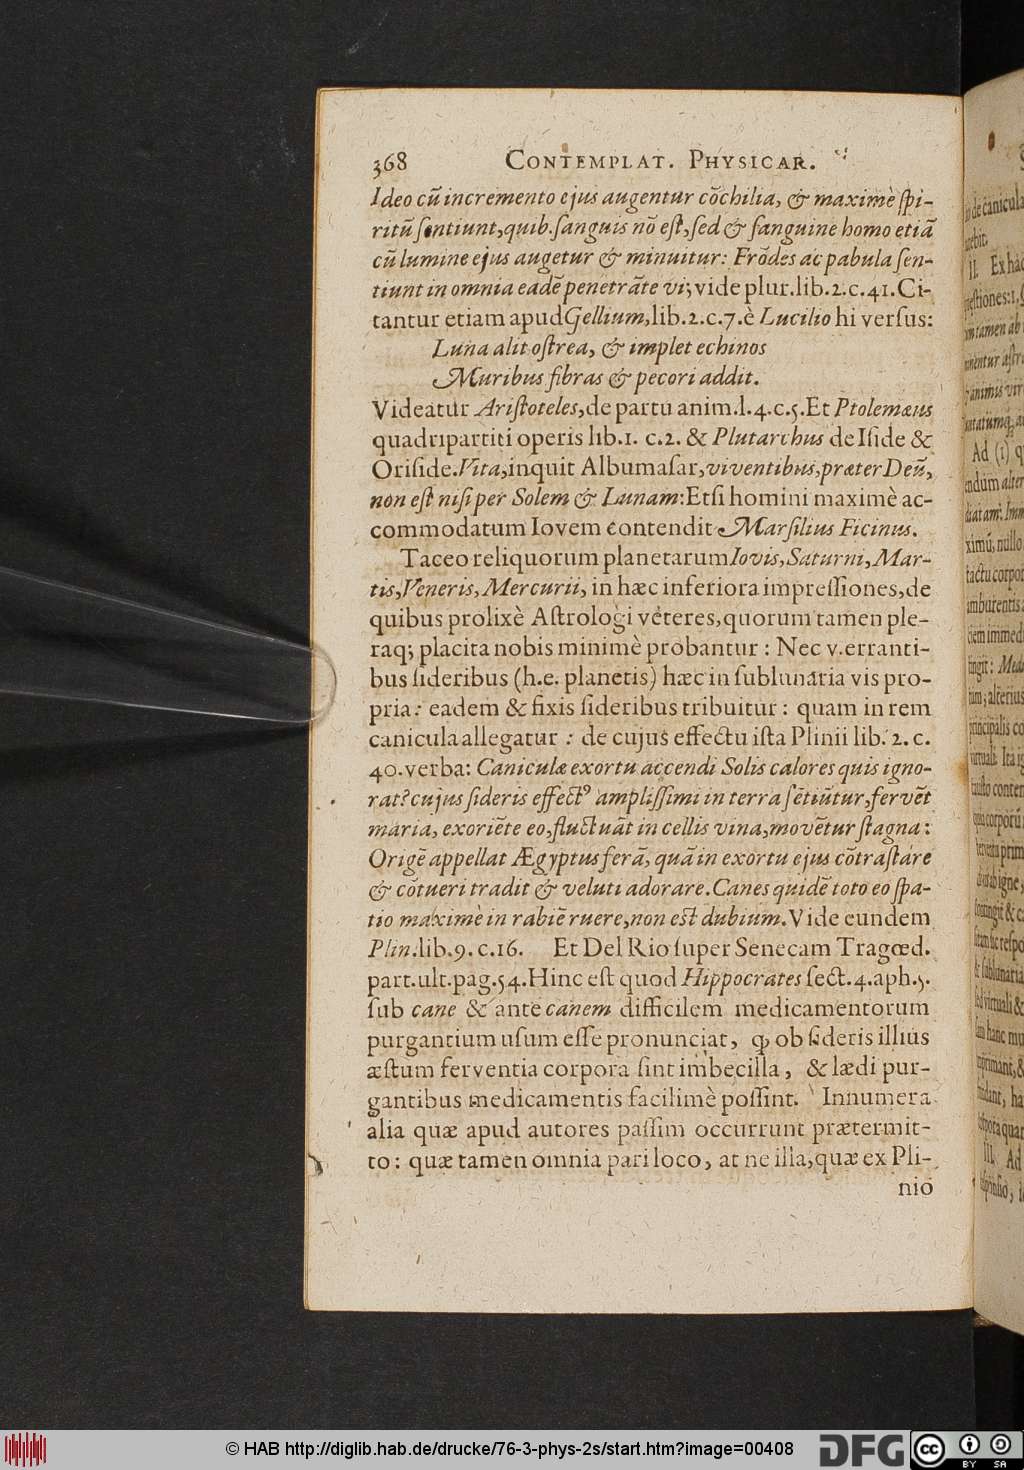 368 CONTEMPLAT. PHYSICAR.
Ideo cũ incremento ejus augentur cõchilia, & maximè ſpi-
ritũ ſentiunt, quib. ſanguis nõ eſt, ſed & ſanguine homo etiã
cũ lumine ejus augetur & minuitur: Frõdes ac pabula ſen-
tiunt in omnia eadẽ penetrãte vi; vide plur. lib. 2. c. 41. Ci-
tantur etiam apud Gellium, lib. 2. c. 7. è Lucilio hi verſus:
Luna alit oſtrea, & implet echinos
Muribus fibras & pecori addit.
Videatur Ariſtoteles, de partu anim. l. 4. c. 5. Et Ptolemæus
quadripartiti operis lib. 1. c. 2. & Plutarchus de Iſide &
Oriſide. Vita, inquit Albumaſar, viventibus, præter Deũ,
non eſt niſi per Solem & Lunam: Etſi homini maximè ac-
commodatum Iovem contendit Marſilius Ficinus.
Taceo reliquorum planetarum Iovis, Saturni, Mar-
tis, Veneris, Mercurii, in hæc inferiora impreſſiones, de
quibus prolixè Aſtrologi veteres, quorum tamen ple-
raq; placita nobis minimè probantur: Nec v. erranti-
bus ſideribus (h. e. planetis) hæc in ſublunaria vis pro-
pria: eadem & fixis ſideribus tribuitur: quam in rem
canicula allegatur: de cujus effectu iſta Plinii lib. 2. c.
40. verba: Caniculæ exortu accendi Solis calores quis igno-
rat? cujus ſideris effectꝰ ampliſſimi in terra ſẽtiũtur, fervẽt
maria, exoriẽte eo, fluctuãt in cellis vina, movẽtur ſtagna:
Origẽ appellat Ægyptus ferã, quã in exortu ejus cõtraſtare
& cõtueri tradit & veluti adorare. Canes quidẽ toto eo ſpa-
tio maximè in rabiẽ ruere, non eſt dubium. Vide eundem
Plin. lib. 9. c. 16. Et Del Rio ſuper Senecam Tragœd.
part. ult. pag. 54. Hinc eſt quod Hippocrates ſect. 4. aph. 5.
ſub cane & ante canem difficilem medicamentorum
purgantium uſum eſſe pronunciat, ꝙ ob ſideris illius
æſtum ferventia corpora ſint imbecilla, & lædi pur-
gantibus medicamentis facilimè poſſint. Innumera
alia quæ apud autores paſſim occurrunt prætermit-
to: quæ tamen omnia pari loco, at ne illa, quæ ex Pli-
nio
© HAB http://diglib.hab.de/drucke/76-3-phys-2s/start.htm?image=00408
DFG
cc BY SA